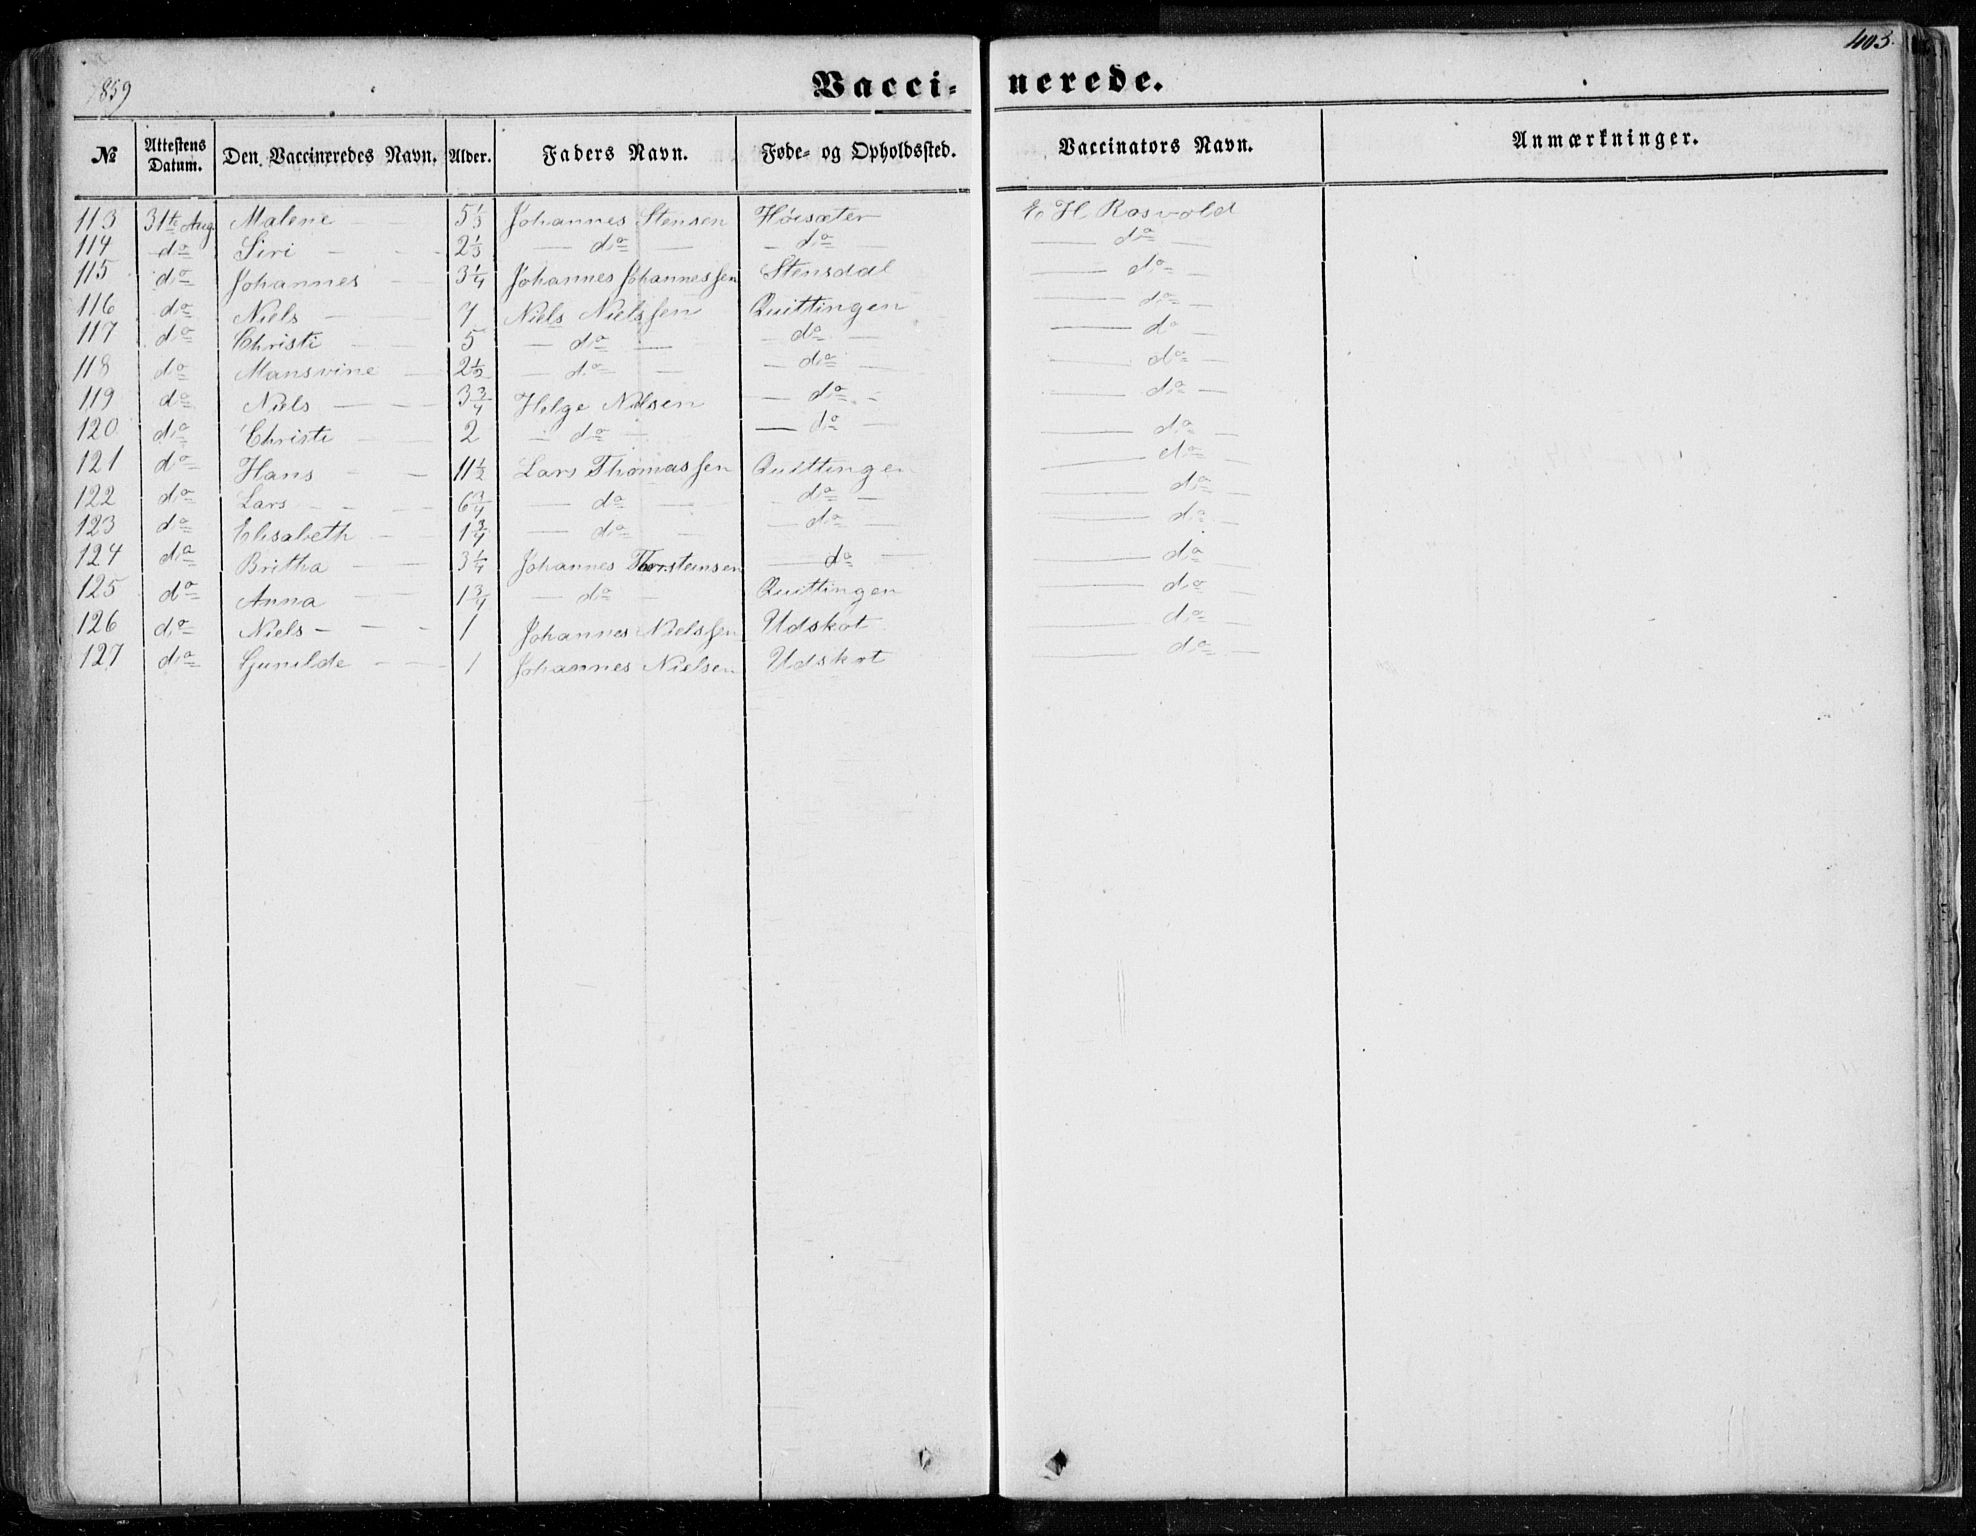 1859 Vaccinerede. 405.
№ Attestens Datum. Den Vaccineredes Navn. Alder. Faders Navn. Føde- og Opholdssted. Vaccinators Navn. Anmærkninger.
113 31te Aug Malene — 5 1/3 Johannes Stensen Høisæter E. H. Rosvold
114 do Siri — 2 1/3 — do — — do — — do —
115 do Johannes — 3 1/4 Johannes Johannessen Stensdal — do —
116 do Niels — 7 Niels Nielssen Quittingen — do —
117 do Christi — 5 — do — — do — — do —
118 do Mansvine — 2 1/2 — do — — do — — do —
119 do Niels — 3 3/4 Helge Nilsen — do — — do —
120 do Christi — 2 — do — — do — — do —
121 do Hans — 11 1/2 Lars Thomassen Quittingen — do —
122 do Lars — 6 3/4 — do — — do — — do —
123 do Elisabeth — 1 3/4 — do — — do — — do —
124 do Britha — 3 1/4 Johannes Thorsteinsen — do — — do —
125 do Anna — 1 3/4 — do — Quittingen — do —
126 do Niels — 1 Johannes Nielssen Udskot — do —
127 do Gunilde — 1 Johannes Nielsen Udskot — do —